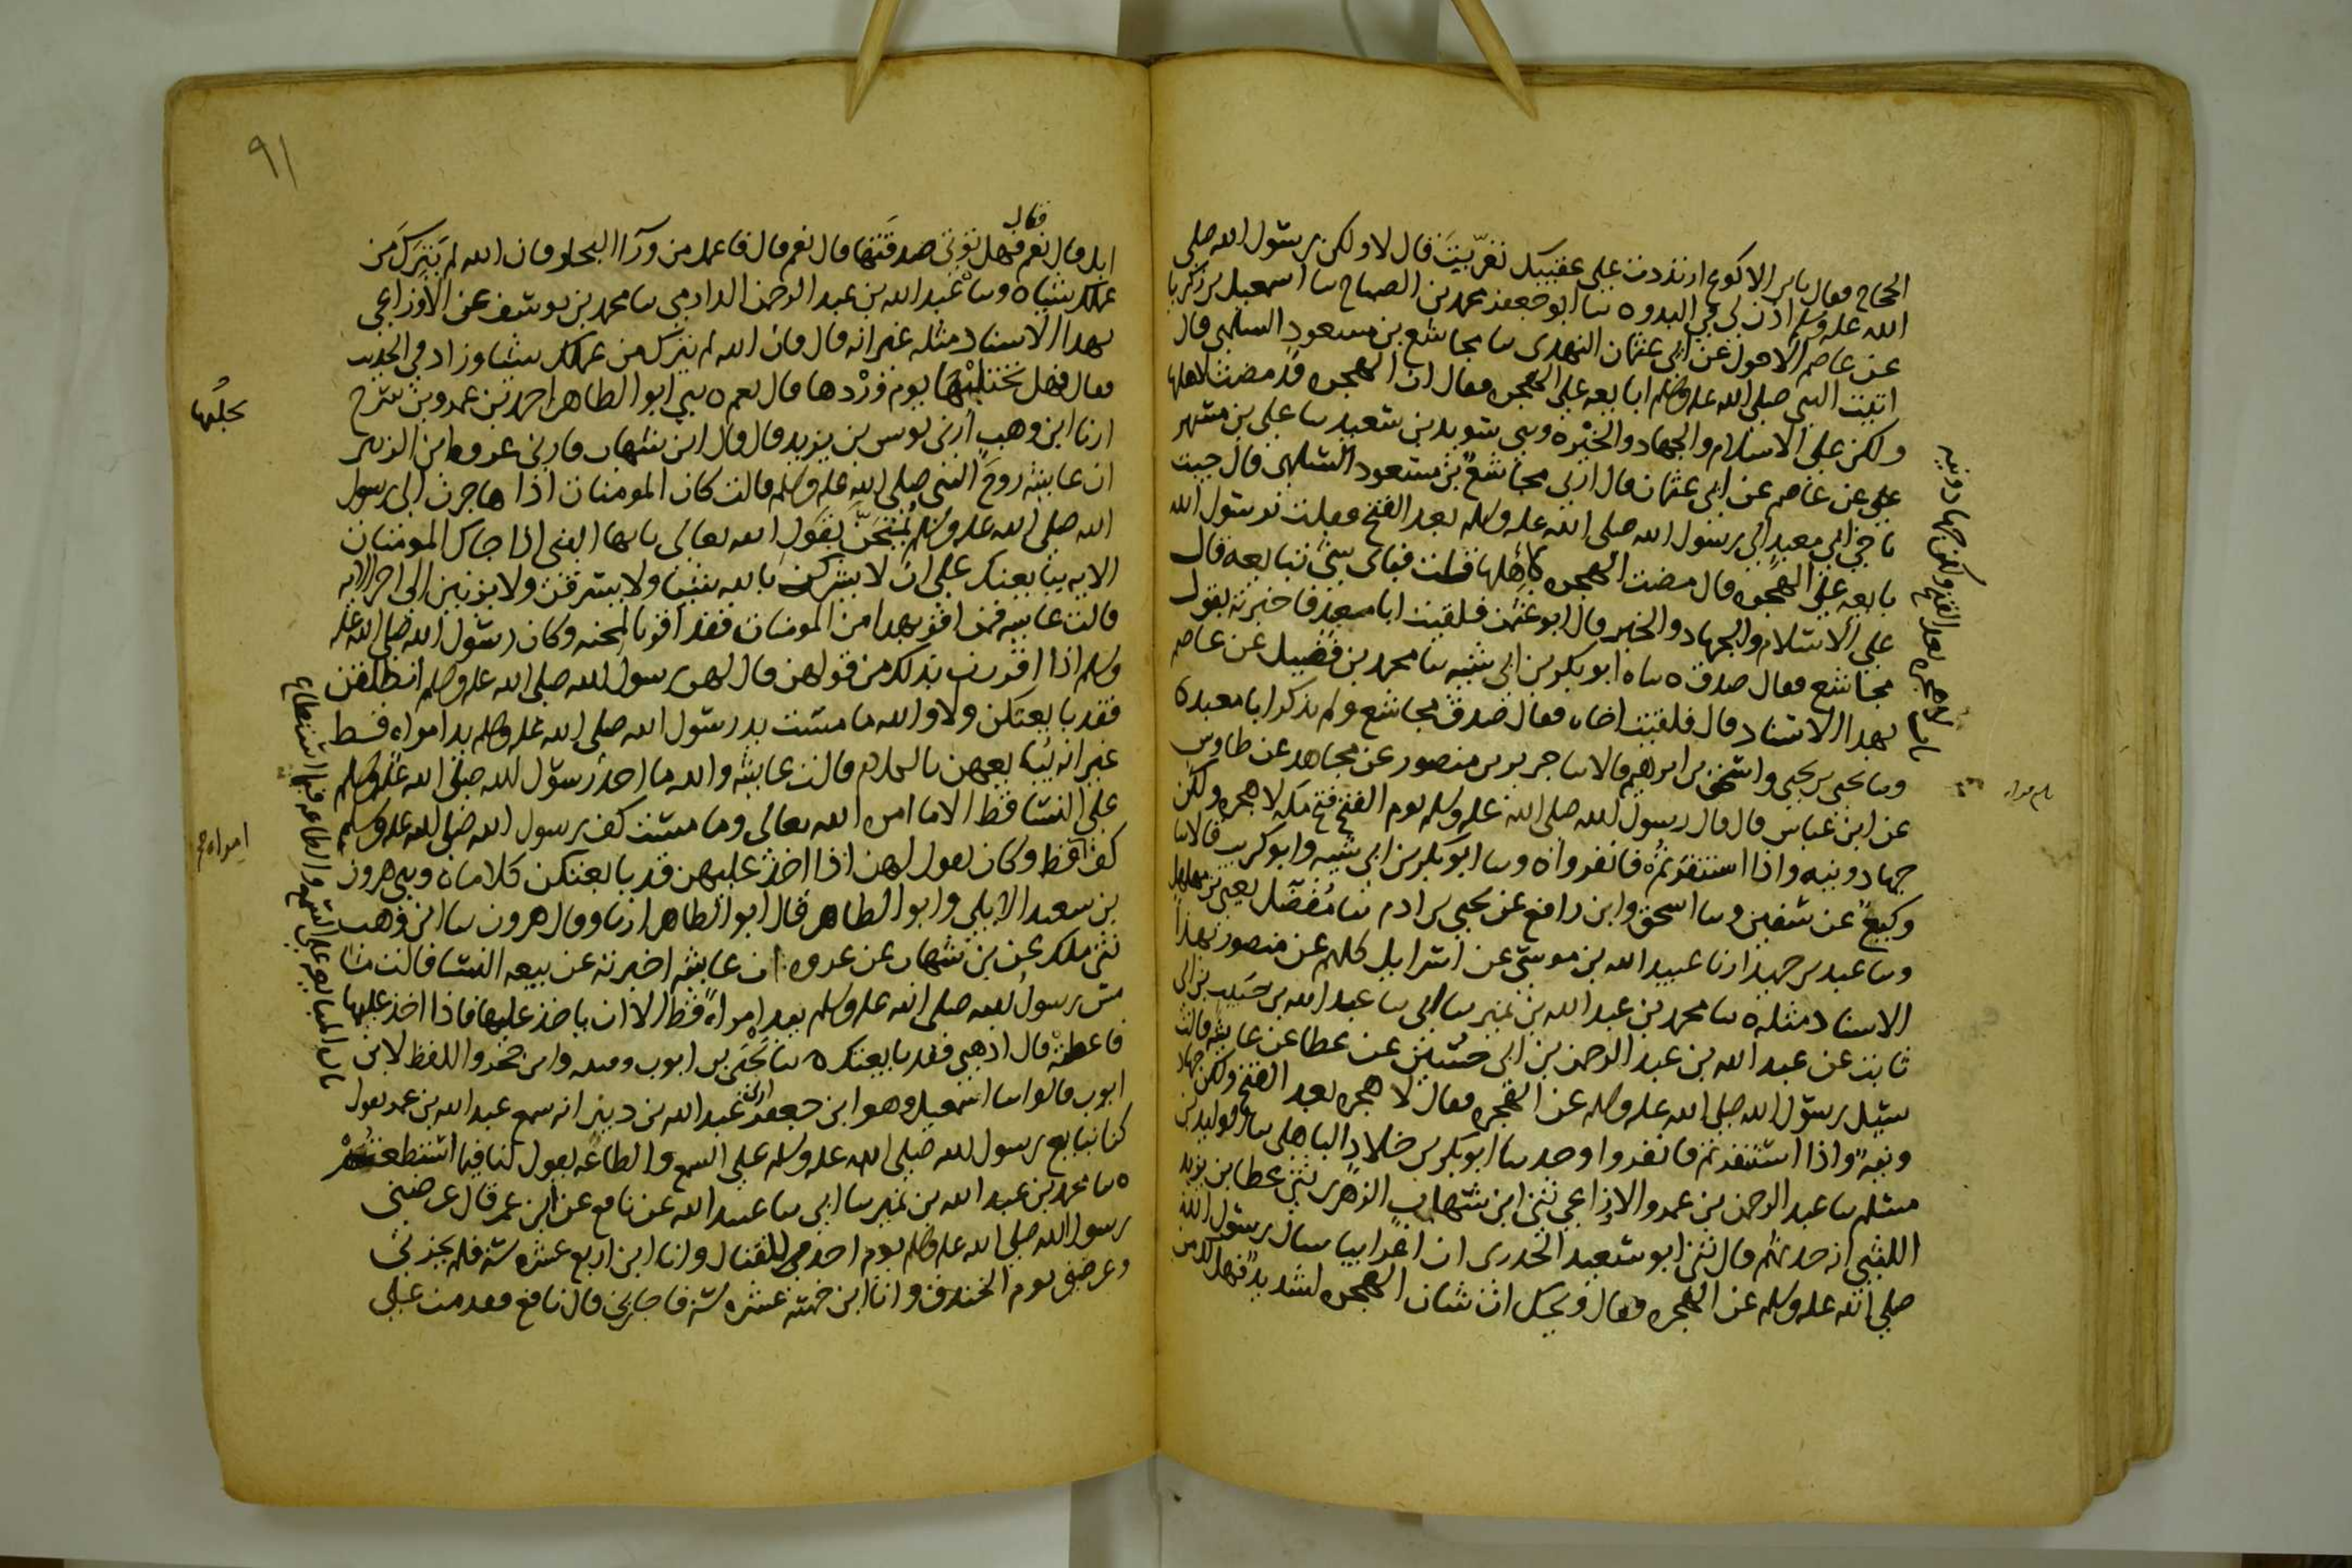 الحجاج فقال يابن الاكوع ارتددت على عقبيك تعرّبتَ قال لا ولكن رسول الله صلى
الله عليه وسلم اذن لي في البدو ٥ ثنا ابو جعفر محمد بن الصباح ثنا اسمعيل بن زكريا
عن عاصم الاحول عن ابي عثمان النهدي ثنا مجاشع بن مسعود السلمي قال
اتيت النبي صلى الله عليه وسلم ابايعه على الهجره فقال ان الهجره قد مضت لاهلها
ولكن على الاسلام والجهاد والخير ٥ وثني سويد بن سعيد ثنا على بن مسهر
عن عاصم عن ابي عثمان قال ارني مجاشع بن مسعود السلمي قال جيت
باخي ابي معبد الى رسول الله صلى الله عليه وسلم بعد الفتح فقلت يرسول الله
بايعه على الهجره قال مضت الهجره باهلها قلت فباى شئ تبايعه قال
على الاسلام والجهاد والخير قال ابو عثمن فلقيت ابا معبد فاخبرته بقول
مجاشع فقال صدق ٥ ثنا ابو بكر بن ابي شيبه ثنا محمد بن فضيل عن عاصم
بهذا الاسناد قال فلقيت اخاه فقال صدق مجاشع ولم يذكر ابا معبد ٥
وثنا يحيى بن يحيى واسحق بن ابرهيم قالا ثنا جرير عن منصور عن مجاهد عن طاوس
عن ابن عباس قال قال رسول الله صلى الله عليه وسلم يوم الفتح فتح مكه لا هجره ولكن
جهاد ونيه واذا استنفرتم فانفروا ٥ وثنا ابو بكر بن ابي شيبه وابو كريب قالا ثنا
وكيع عن سفين وثنا اسحق وابن رافع عن يحيى بن ادم ثنا مفضل يعني بن مهلهل
وثنا عبد بن حميد ارنا عبيد الله بن موسى عن اسرايل كلهم عن منصور بهذا
الاسناد مثله ٥ ثنا محمد بن عبد الله بن نمير ثنا ابي ثنا عبد الله بن حبيب بن ابي
ثابت عن عبد الله بن عبد الرحمن بن ابي حسين عن عطا عن عايشه قالت
سيل رسول الله صلى الله عليه وسلم عن الهجره فقال لا هجره بعد الفتح ولكن جهاد
ونيه واذا استنفرتم فانفروا وحدثنا ابو بكر بن خلاد الباهلي ثنا الوليد بن
مسلم ثنا عبد الرحمن بن عمرو الاوزاعي ثني ابن شهاب الزهري ثني عطا بن يزيد
الليثي انه حدثهم قال ثني ابو سعيد الخدري ان اعرابيا سال رسول الله
صلى الله عليه وسلم عن الهجره فقال ويحك ان شان الهجره لشديد فهل لك من
باب لا هجره بعد الفتح ولكن جهاد ونيه
٩١
فقال
ابل قال نعم فهل توتي صدقتها قال نعم قال فاعمل من ورآ البحار فان الله لم يتركَ من
عملك شيا ٥ وثنا عبد الله بن عبد الرحمن الدارمي ثنا محمد بن يوسف عن الاوزاعي
بهذا الاسناد مثله غير انه قال فان الله لم يترك من عملك شيا وزاد في الحديث
فقال فهل تحتلبها يوم وِرْدها قال نعم ٥ ثني ابو الطاهر احمد بن عمرو بن سرح
ارنا ابن وهب ارني يونس بن يزيد قال قال ابن شهاب فارني عروه ابن الزبير
ان عايشه زوج النبي صلى الله عليه وسلم قالت كان المومنات اذا هاجرن الى رسول
الله صلى الله عليه وسلم يُمْتَحَنَّ بقول الله تعالى يايها النبي اذا جاك المومنات
الايه يبايعنك على ان لا يشركن بالله شيئا ولا يسرقن ولا يزنين الى اخر الايه
قالت عايشه فمن اقر بهذا من المومنات فقد اقر بالمحنه وكان رسول الله صلى الله عليه
وسلم اذا اقررن بذلك من قولهن قال لهن رسول الله صلى الله عليه وسلم انطلقن
فقد بايعتكن ولا والله ما مست يد رسول الله صلى الله عليه وسلم يد امراه قط
غير انه يُبايعهن بالكلام قالت عايشه والله ما اخذ رسول الله صلى الله عليه وسلم
على النسا قط الا ما امره الله تعالى وما مست كف رسول الله صلى الله عليه وسلم
كف قط وكان يقول لهن اذا اخذ عليهن قد بايعتكن كلاما ٥ وثني هرون
بن سعيد الايلي وابو الطاهر قال ابو الطاهر ارنا وقال هرون ثنا ابن وهب
ثني ملك عن بن شهاب عن عروه ان عايشه اخبرته عن بيعه النسا قالت ما
مس رسول الله صلى الله عليه وسلم بيد امراةً قط الا ان ياخذ عليها فاذا اخذ عليها
فاعطته قال اذهبي فقد بايعتك ٥ ثنا يحيى بن ايوب وقتيبه وابن حجر واللفظ لابن
ايوب قالوا ثنا اسمعيل وهو ابن جعفر ارني عبد الله بن دينار انه سمع عبد الله بن عمر يقول
كنا نبايع رسول الله صلى الله عليه وسلم على السمع والطاعه يقول لنا فيما استطعتم
٥ ثنا محمد بن عبد الله بن نمير ثنا ابي ثنا عبيد الله عن نافع عن ابن عمر قال عرضني
رسول الله صلى الله عليه وسلم يوم احد في القتال وانا ابن اربع عشره سنه فلم يجزني
وعرضني يوم الخندق وانا ابن خمسه عشره سنه فاجازني قال نافع فقدمت على
تحلُبها
امراه
باب المبايعه على السمع والطاعه فيما استطاع